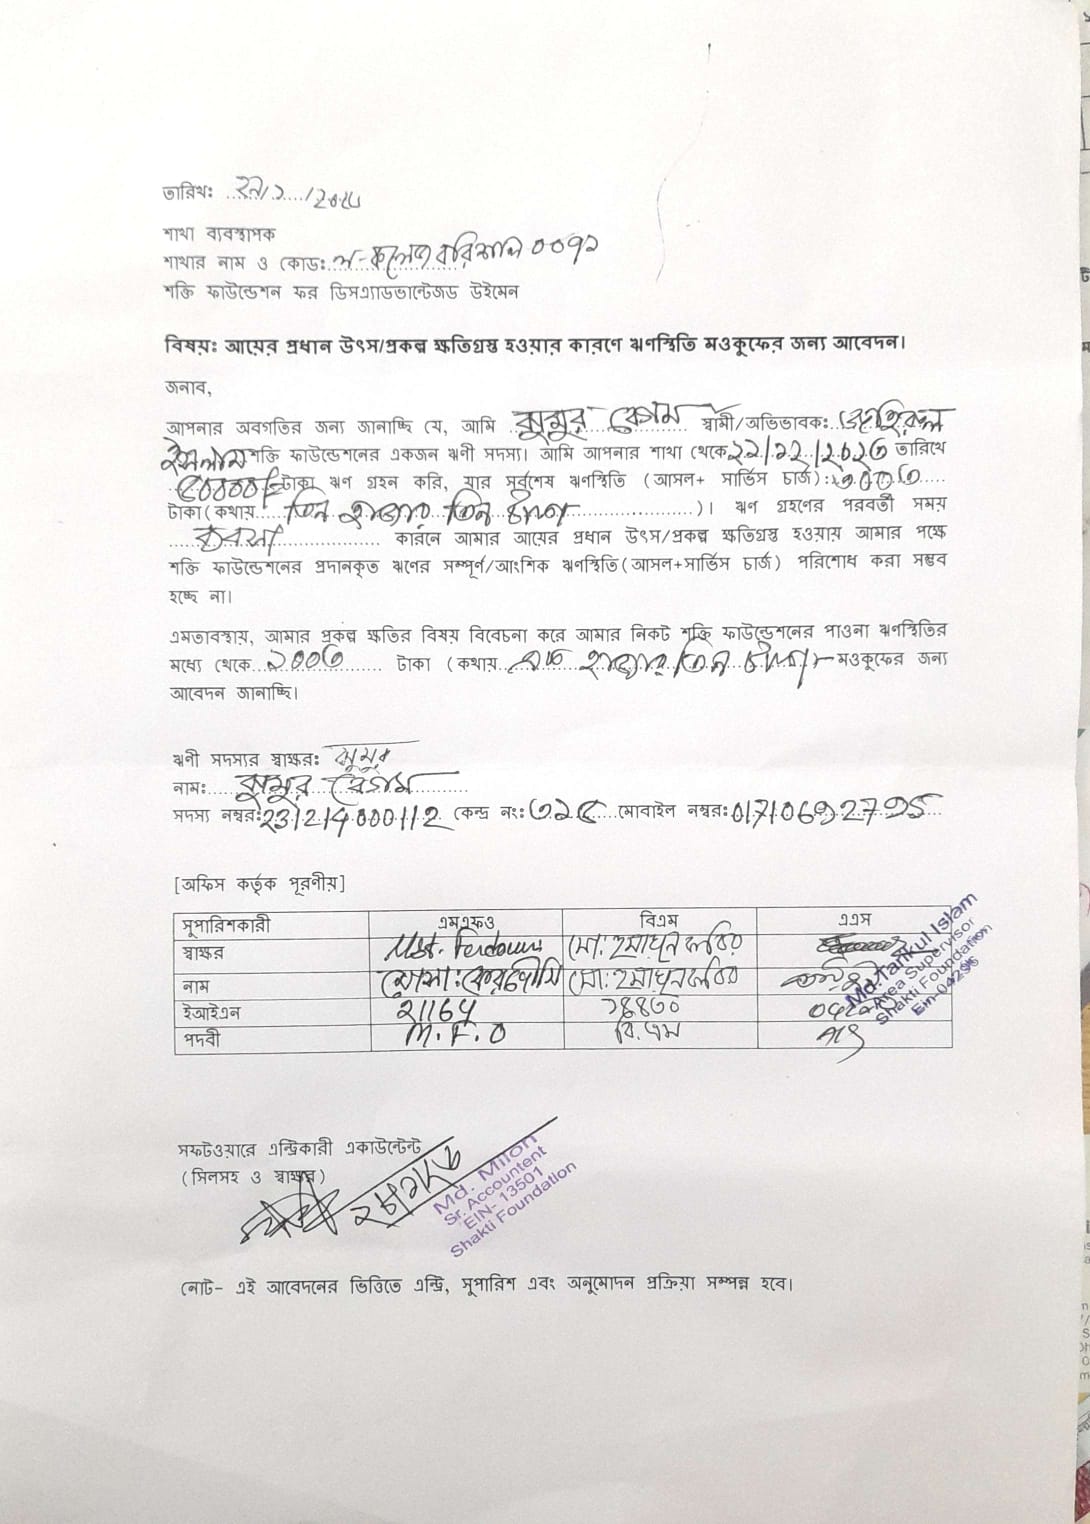 তারিখঃ
শাখা ব্যবস্থাপক
শাখার নাম ও কোডঃ বরিশাল ০০৭১
শক্তি ফাউন্ডেশন ফর ডিসএ্যাডভান্টেজড উইমেন
বিষয়ঃ আয়ের প্রধান উৎস/প্রকল্প ক্ষতিগ্রস্ত হওয়ার কারণে ঋণস্থিতি মওকুফের জন্য আবেদন।
জনাব,
আপনার অবগতির জন্য জানাচ্ছি যে, আমি ঝুমুর বেগম স্বামী/অভিভাবক:
ইসলাম শক্তি ফাউন্ডেশনের একজন ঋণী সদস্য। আমি আপনার শাখা থেকে তারিখে
৫০০০০/= টাকা ঋণ গ্রহন করি, যার সর্বশেষ ঋণস্থিতি (আসল+ সার্ভিস চার্জ):
টাকা (কথায় তিন হাজার তিন টাকা )। ঋণ গ্রহণের পরবর্তী সময়
ব্যবসা কারনে আমার আয়ের প্রধান উৎস/প্রকল্প ক্ষতিগ্রস্ত হওয়ায় আমার পক্ষে
শক্তি ফাউন্ডেশনের প্রদানকৃত ঋণের সম্পূর্ণ/আংশিক ঋণস্থিতি(আসল+সার্ভিস চার্জ) পরিশোধ করা সম্ভব
হচ্ছে না।
এমতাবস্থায়, আমার প্রকল্প ক্ষতির বিষয় বিবেচনা করে আমার নিকট শক্তি ফাউন্ডেশনের পাওনা ঋণস্থিতির
মধ্যে থেকে ১০০৩ টাকা (কথায় এক হাজার তিন টাকা) মওকুফের জন্য
আবেদন জানাচ্ছি।
ঋণী সদস্যর স্বাক্ষরঃ ঝুমুর
নামঃ ঝুমুর বেগম
সদস্য নম্বরঃ 231214000112 কেন্দ্র নংঃ ৩১৫ মোবাইল নম্বরঃ 01710692795
[অফিস কর্তৃক পূরণীয়]
সুপারিশকারী এমএফও বিএম এএস
স্বাক্ষর Mst. Ferdousi মো: হুমায়ুন কবির
নাম মোসা: ফেরদৌসি মো: হুমায়ুন কবির
ইআইএন ১৪৪৩০
পদবী M.F.O বি.এম
Md. Tarikul Islam
Area Supervisor
Shakti Foundation
Ein-04296
সফটওয়ারে এন্ট্রিকারী একাউন্টেন্ট
(সিলসহ ও স্বাক্ষর)
Md. Milon
Sr. Accountent
EIN- 13501
Shakti Foundation
নোট- এই আবেদনের ভিত্তিতে এন্ট্রি, সুপারিশ এবং অনুমোদন প্রক্রিয়া সম্পন্ন হবে।